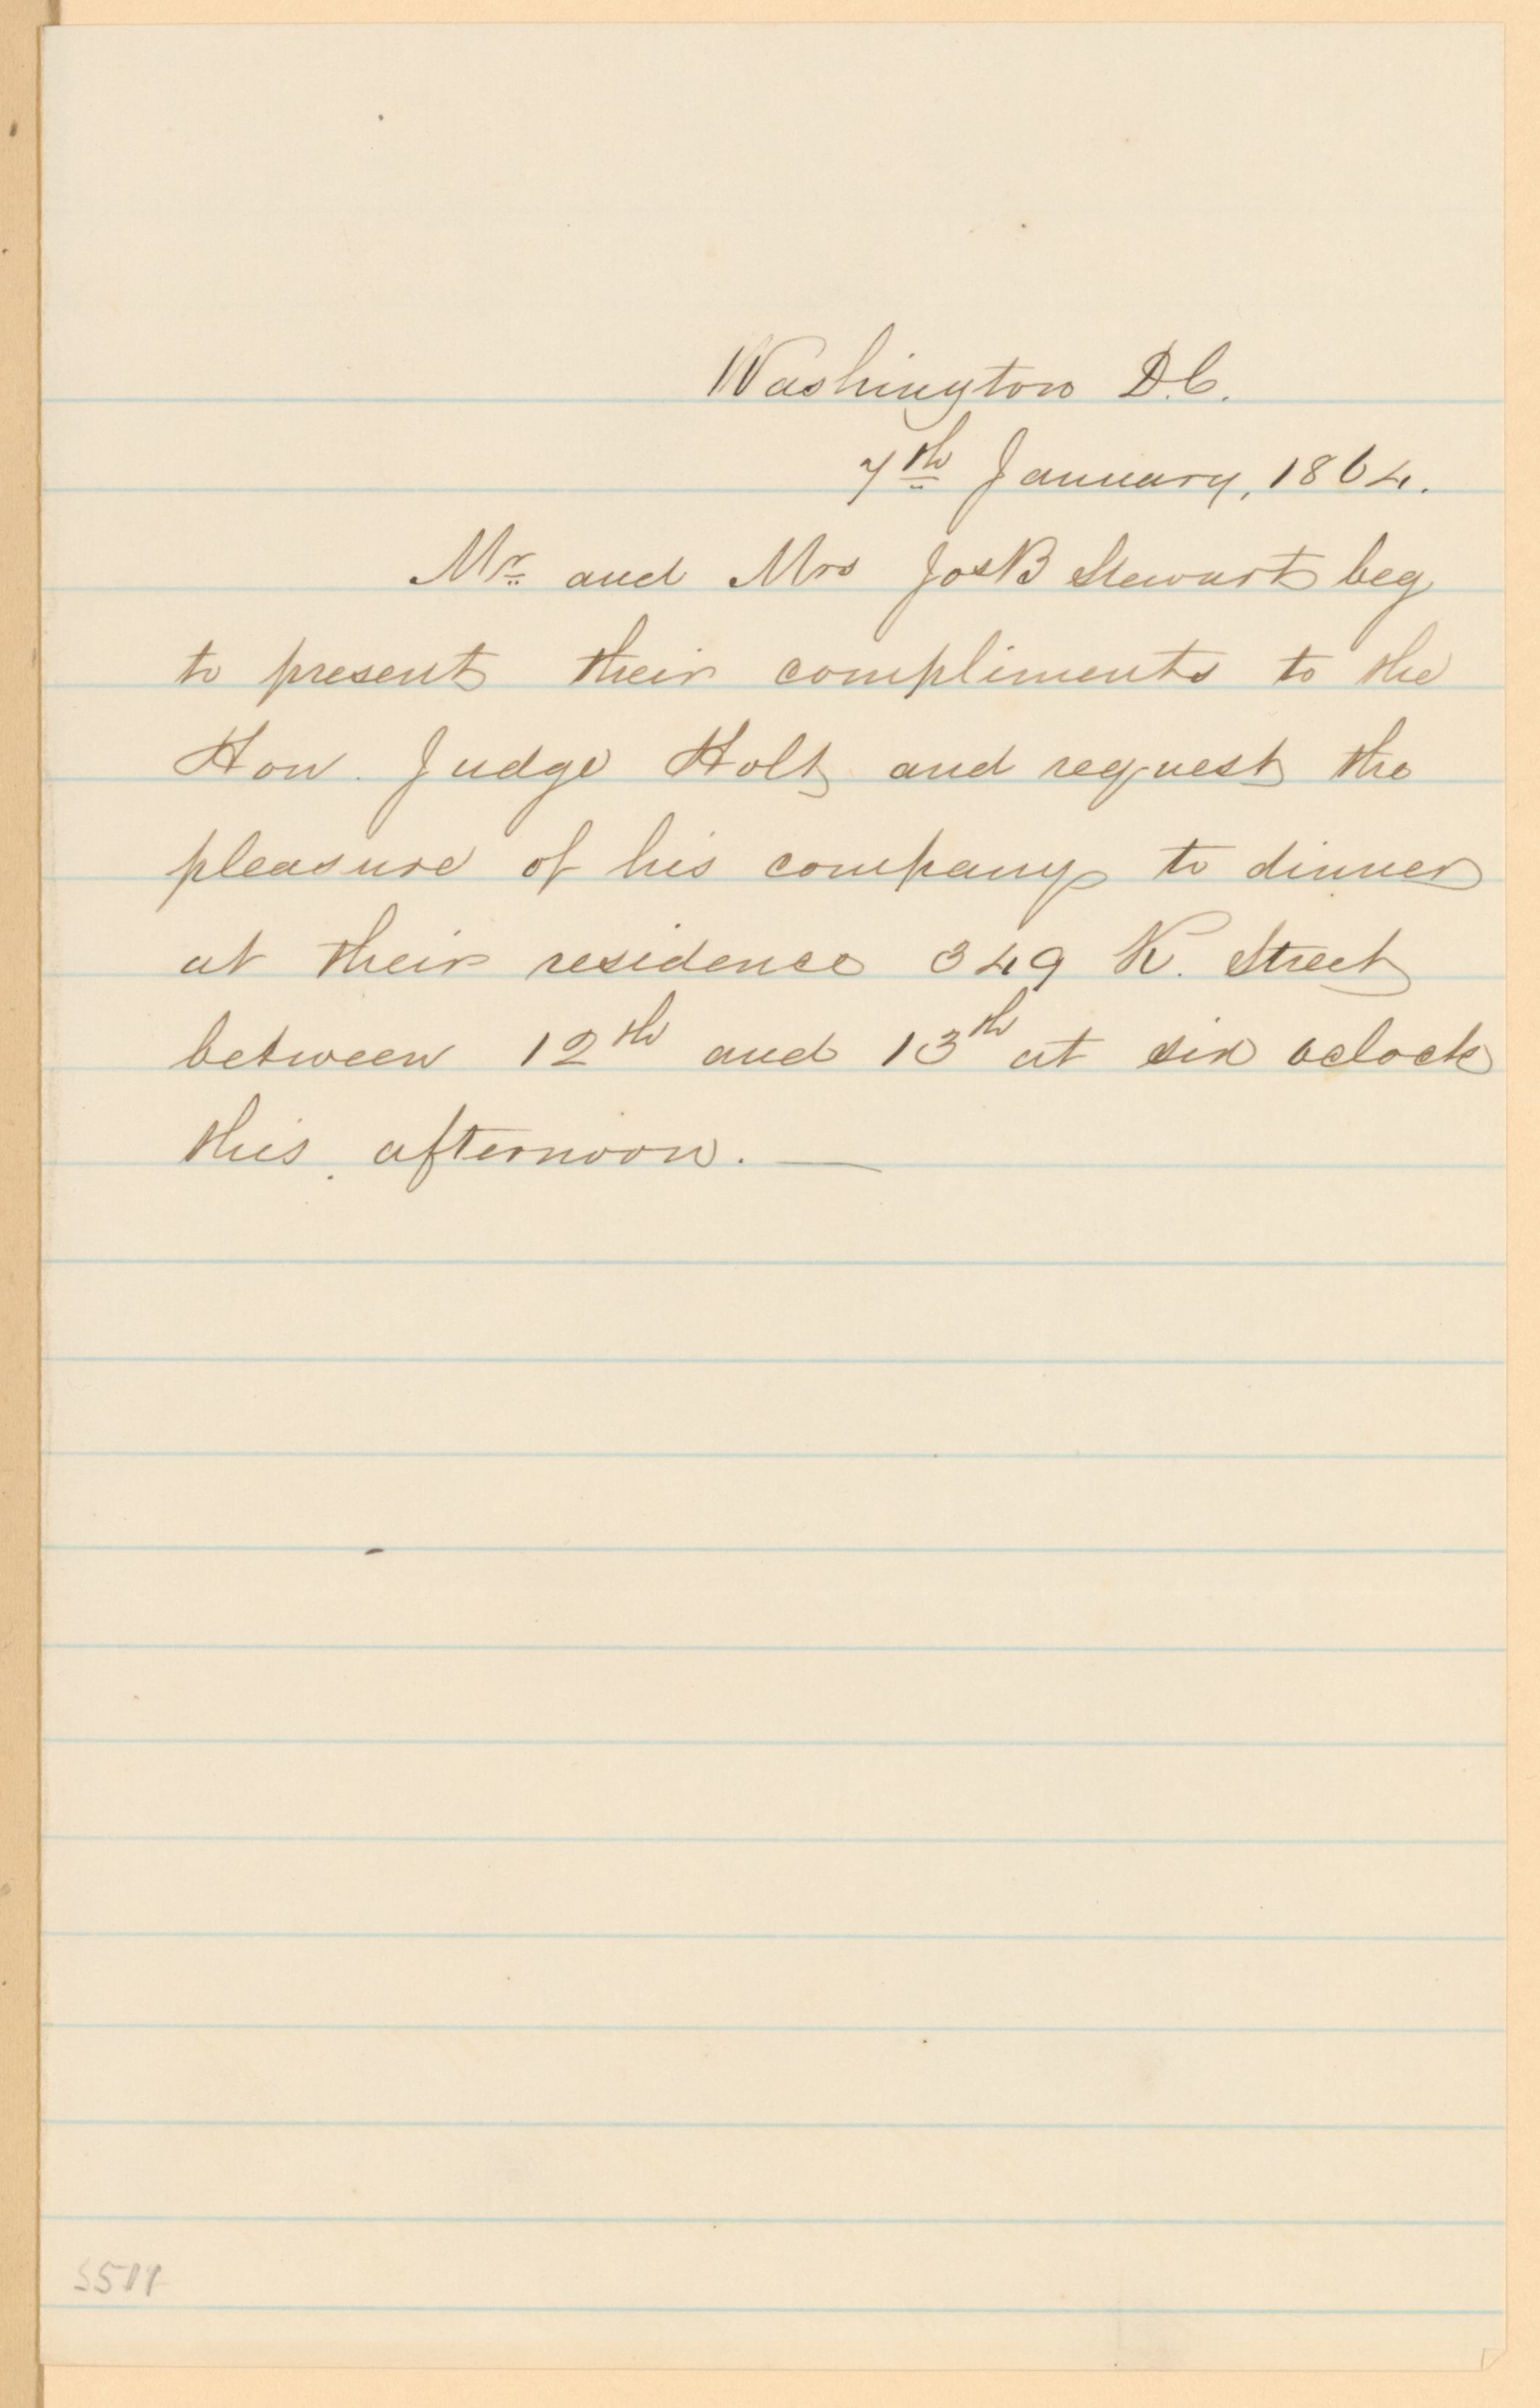 Washington D.C.
7th January, 1864.
Mr. and Mrs Jos B Stewart beg
to present their compliments to the
Hon. Judge Holt and request the
pleasure of his company to dinner
at their residence 349 K. Street
between 12th and 13th at six oclock
this afternoon. —